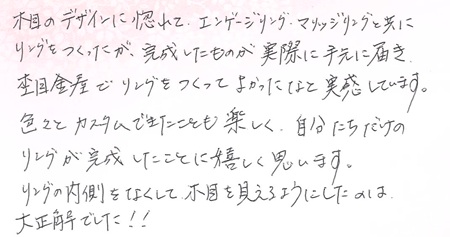 木目のデザインに惚れて、エンゲージリング・マリッジリングと共に
リングをつくったが、完成したものが実際に手元に届き、
杢目金屋でリングをつくってよかったなと実感しています。
色々とカスタムできたことも楽しく、自分たちだけの
リングが完成したことに嬉しく思います。
リングの内側をなくして、木目を見えるようにしたのは、
大正解でした!!